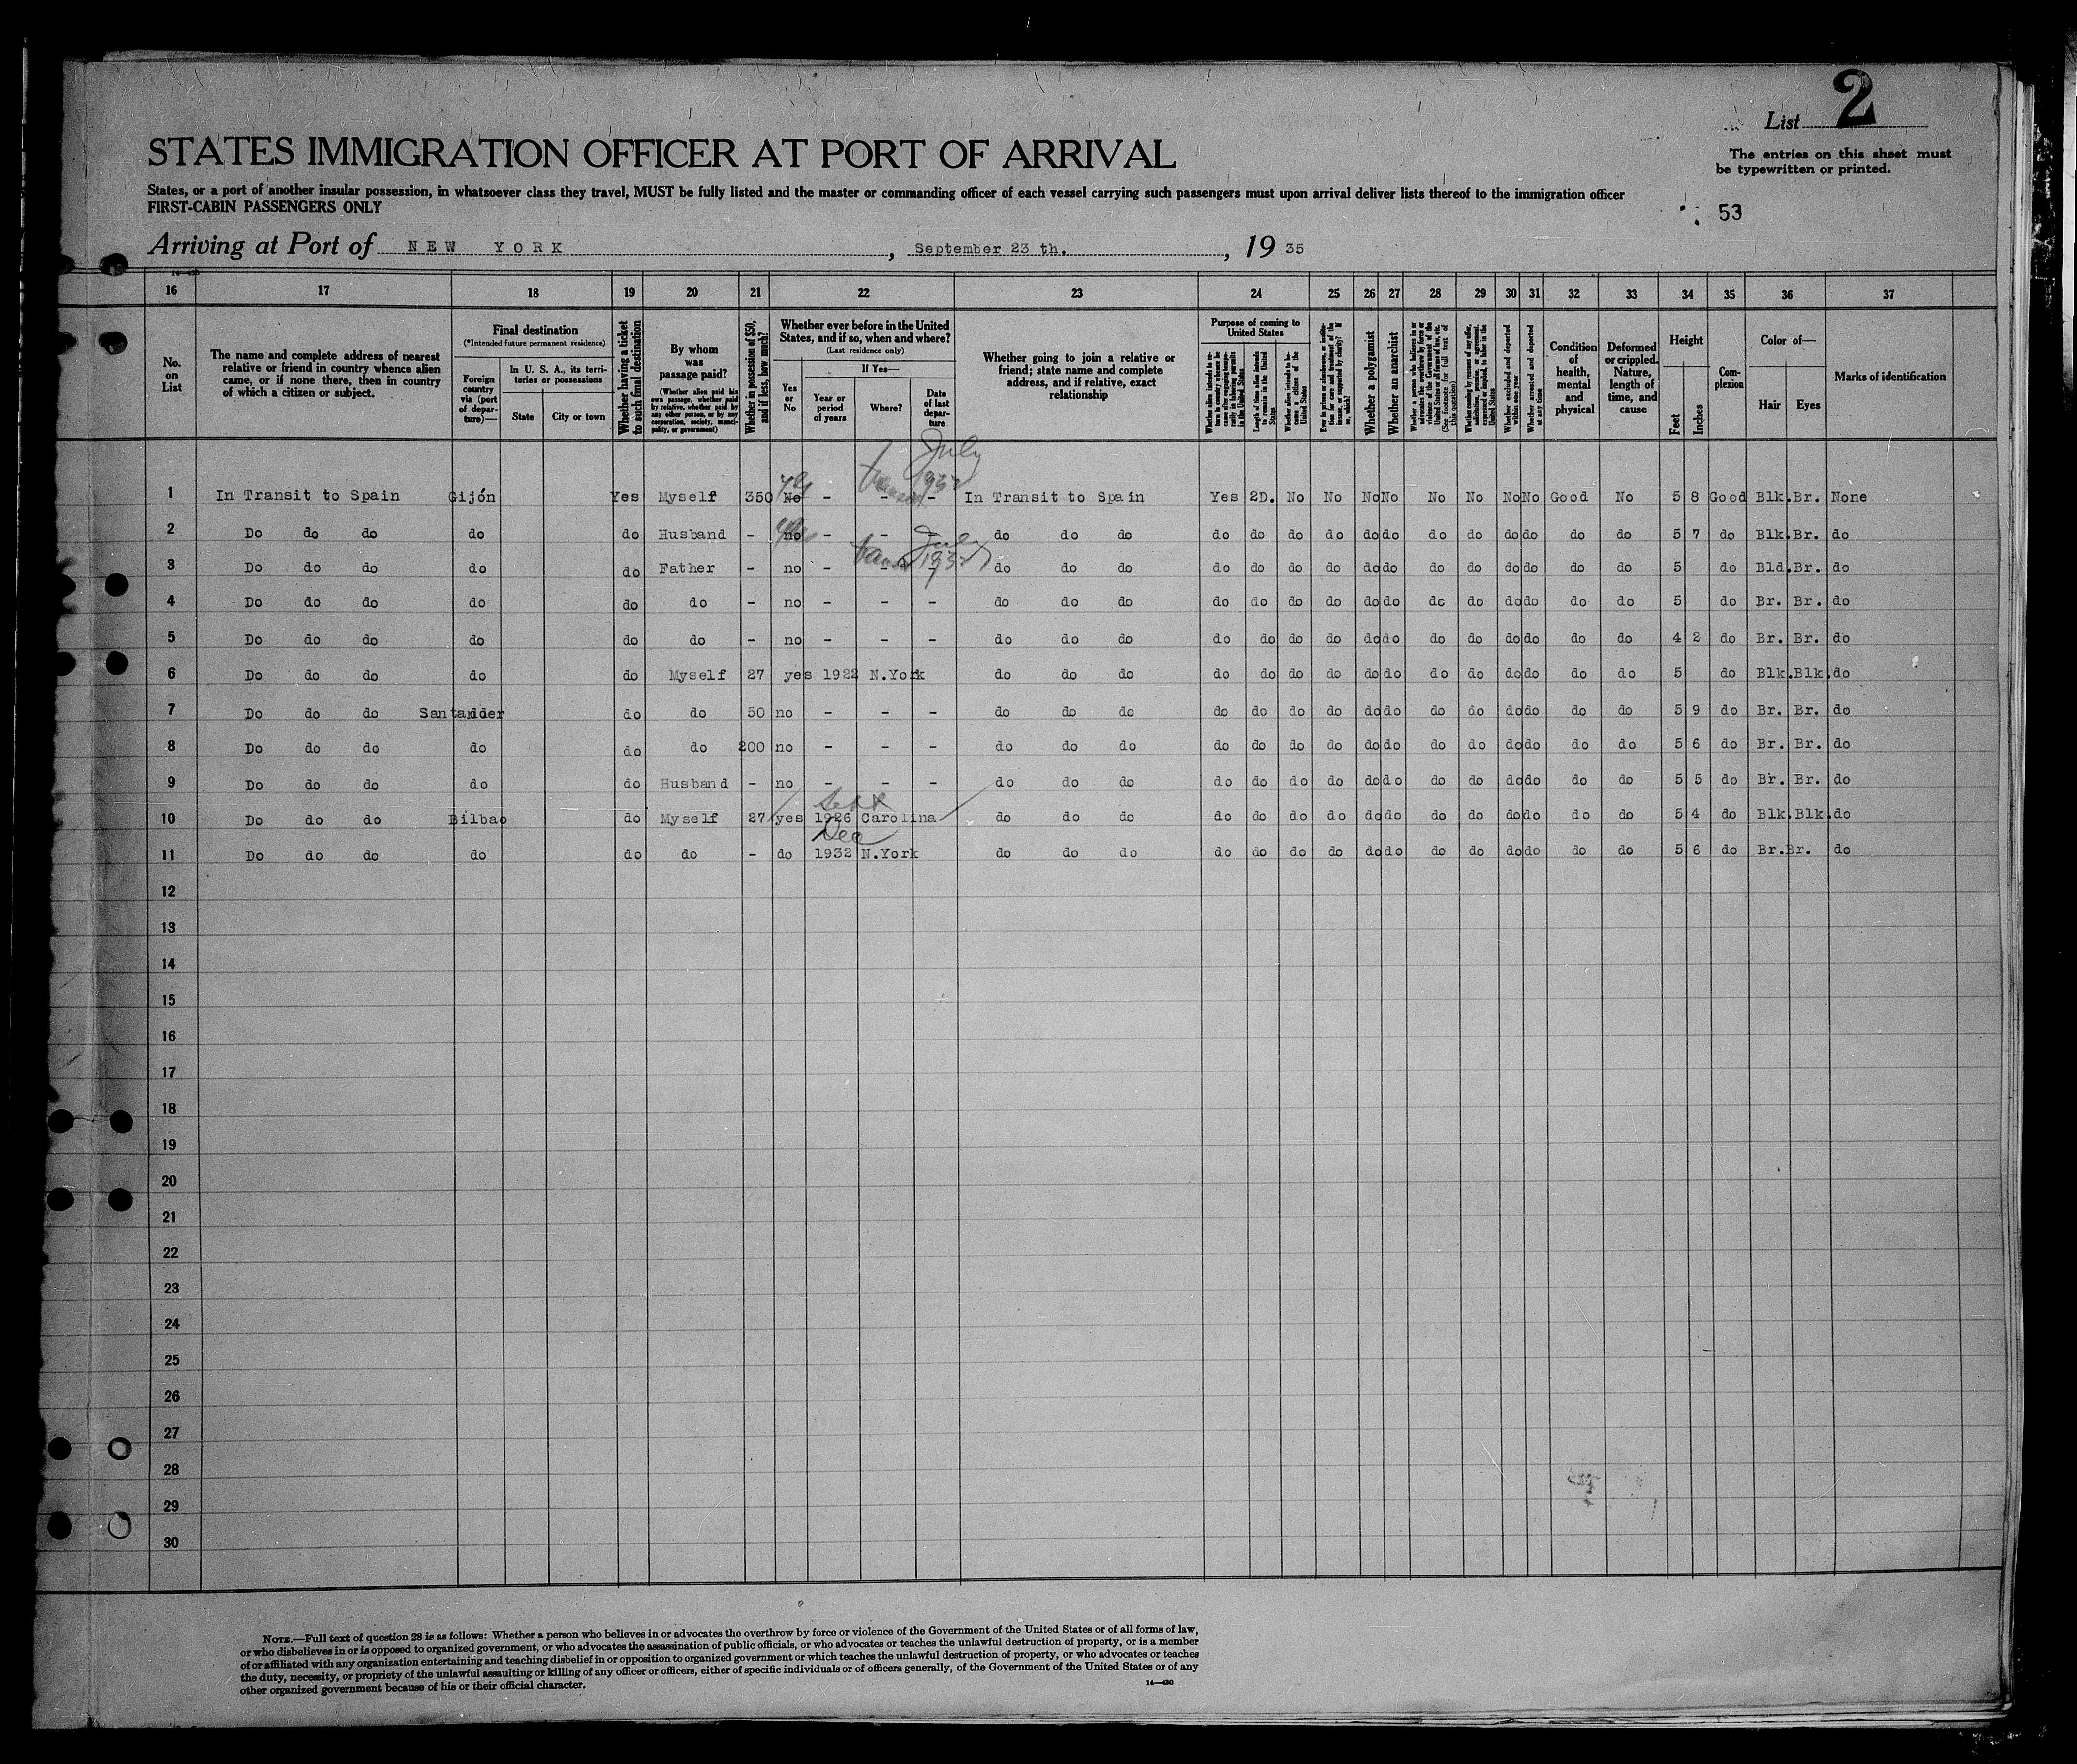 List 2
STATES IMMIGRATION OFFICER AT PORT OF ARRIVAL
The entries on this sheet must
be typewritten or printed.
States, or a port of another insular possession, in whatsoever class they travel, MUST be fully listed and the master or commanding officer of each vessel carrying such passengers must upon arrival deliver lists thereof to the immigration officer
FIRST-CABIN PASSENGERS ONLY
53
Arriving at Port of NEW YORK, September 23 th., 19 35
16 17 18 19 20 21 22 23 24 25 26 27 28 29 30 31 32 33 34 35 36 37
No. on List
The name and complete address of nearest relative or friend in country whence alien came, or if none there, then in country of which a citizen or subject.
Final destination
(*Intended future permanent residence)
Foreign country via (port of departure)—
In U. S. A., its territories or possessions
State City or town
Whether having a ticket to such final destination
By whom was passage paid?
(Whether alien paid his own passage, whether paid by relative, whether paid by any other person, or by any corporation, society, municipality, or government)
Whether in possession of $50, and if less, how much?
Whether ever before in the United States, and if so, when and where?
(Last residence only)
Yes or No
If Yes—
Year or period of years
Where?
Date of last departure
Whether going to join a relative or friend; state name and complete address, and if relative, exact relationship
Purpose of coming to United States
Length of time alien intends to remain in the United States
Whether alien intends to become a citizen of the United States
Whether a polygamist
Whether an anarchist
Whether excluded and deported within one year
Whether arrested and deported at any time
Condition of health, mental and physical
Deformed or crippled. Nature, length of time, and cause
Height
Feet Inches
Complexion
Color of—
Hair Eyes
Marks of identification
July
1 In Transit to Spain Gijón Yes Myself 350 No - - - In Transit to Spain Yes 2D. No No No No No No No No Good No 5 8 Good Blk. Br. None
2 Do do do do do Husband - no - - - do do do do do do do do do do do do do do do 5 7 do Blk. Br. do
July
3 Do do do do do Father - no - - - do do do do do do do do do do do do do do do 5 do Bld. Br. do
4 Do do do do do do - no - - - do do do do do do do do do do do do do do do 5 do Br. Br. do
5 Do do do do do do - no - - - do do do do do do do do do do do do do do do 4 2 do Br. Br. do
6 Do do do do do Myself 27 yes 1922 N.York do do do do do do do do do do do do do do do 5 do Blk. Blk. do
7 Do do do Santander do do 50 no - - - do do do do do do do do do do do do do do do 5 9 do Br. Br. do
8 Do do do do do do 200 no - - - do do do do do do do do do do do do do do do 5 6 do Br. Br. do
9 Do do do do do Husband - no - - - do do do do do do do do do do do do do do do 5 5 do Br. Br. do
Sept
10 Do do do Bilbao do Myself 27 yes 1926 Carolina do do do do do do do do do do do do do do do 5 4 do Blk. Blk. do
Dec
11 Do do do do do do - do 1932 N.York do do do do do do do do do do do do do do do 5 6 do Br. Br. do
12
13
14
15
16
17
18
19
20
21
22
23
24
25
26
27
28
29
30
NOTE.—Full text of question 28 is as follows: Whether a person who believes in or advocates the overthrow by force or violence of the Government of the United States or of all forms of law,
or who disbelieves in or is opposed to organized government, or who advocates the assassination of public officials, or who advocates or teaches the unlawful destruction of property, or is a member
of or affiliated with any organization entertaining and teaching disbelief in or opposition to organized government or which teaches the unlawful destruction of property, or who advocates or teaches
the duty, necessity, or propriety of the unlawful assaulting or killing of any officer or officers, either of specific individuals or of officers generally, of the Government of the United States or of any
other organized government because of his or their official character.
14—430